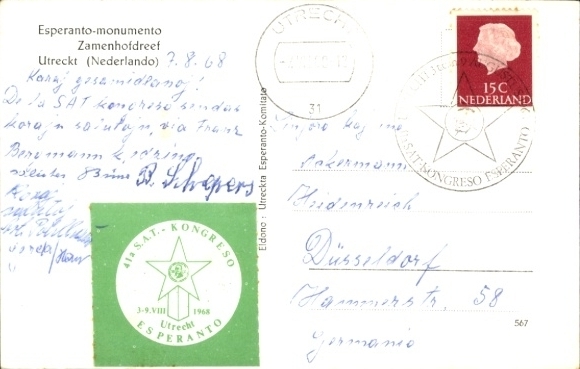 Esperanto-monumento
Zamenhofdreef
Utreckt (Nederlando)
7.8.68
Karaj gesamideanoj!
De la SAT kongreso sendas
korajn salutojn, via Franz
Bergmann k. edzino
B. Schepers
41a S.A.T.- KONGRESO
3-9.VIII 1968
Utrecht
ESPERANTO
Eldono: Utreckta Esperanto-Komitato
UTRECHT
31
15 C
NEDERLAND
SAT-KONGRESO ESPERANTO
Ackermann
Heidenreich
Düsseldorf
Hammerstr, 58
Germanio
567